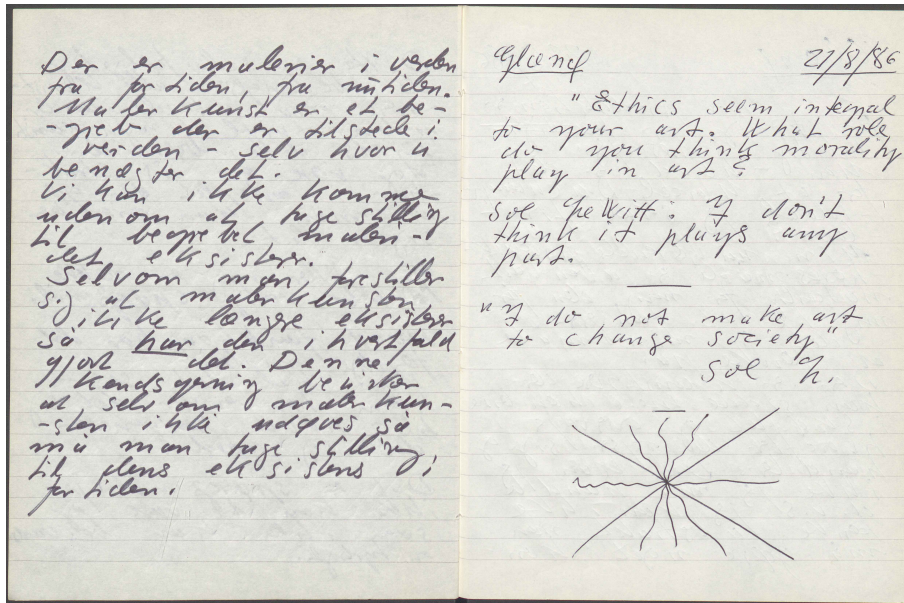 Der er malerier i verden
fra fortiden, fra nutiden.
Malerkunst er et be-
-greb der er tilstede i
verden - selv hvor vi
benægter det.
Vi kan ikke komme
udenom at tage stilling
til begrebet maleri -
det eksisterer.
Selvom man forestiller
sig at malerkunsten
ikke længere eksisterer
så har den i hvert fald
gjort det. Denne
kendsgerning bevirker
at selv om malerkun-
-sten ikke udøves så
må man tage stilling
til dens eksistens i
fortiden.
21/8/86
"Ethics seem integral
to your art. What role
do you think morality
play in art?
Sol LeWitt: I don't
think it plays any
part.
"I do not make art
to change society"
Sol L.